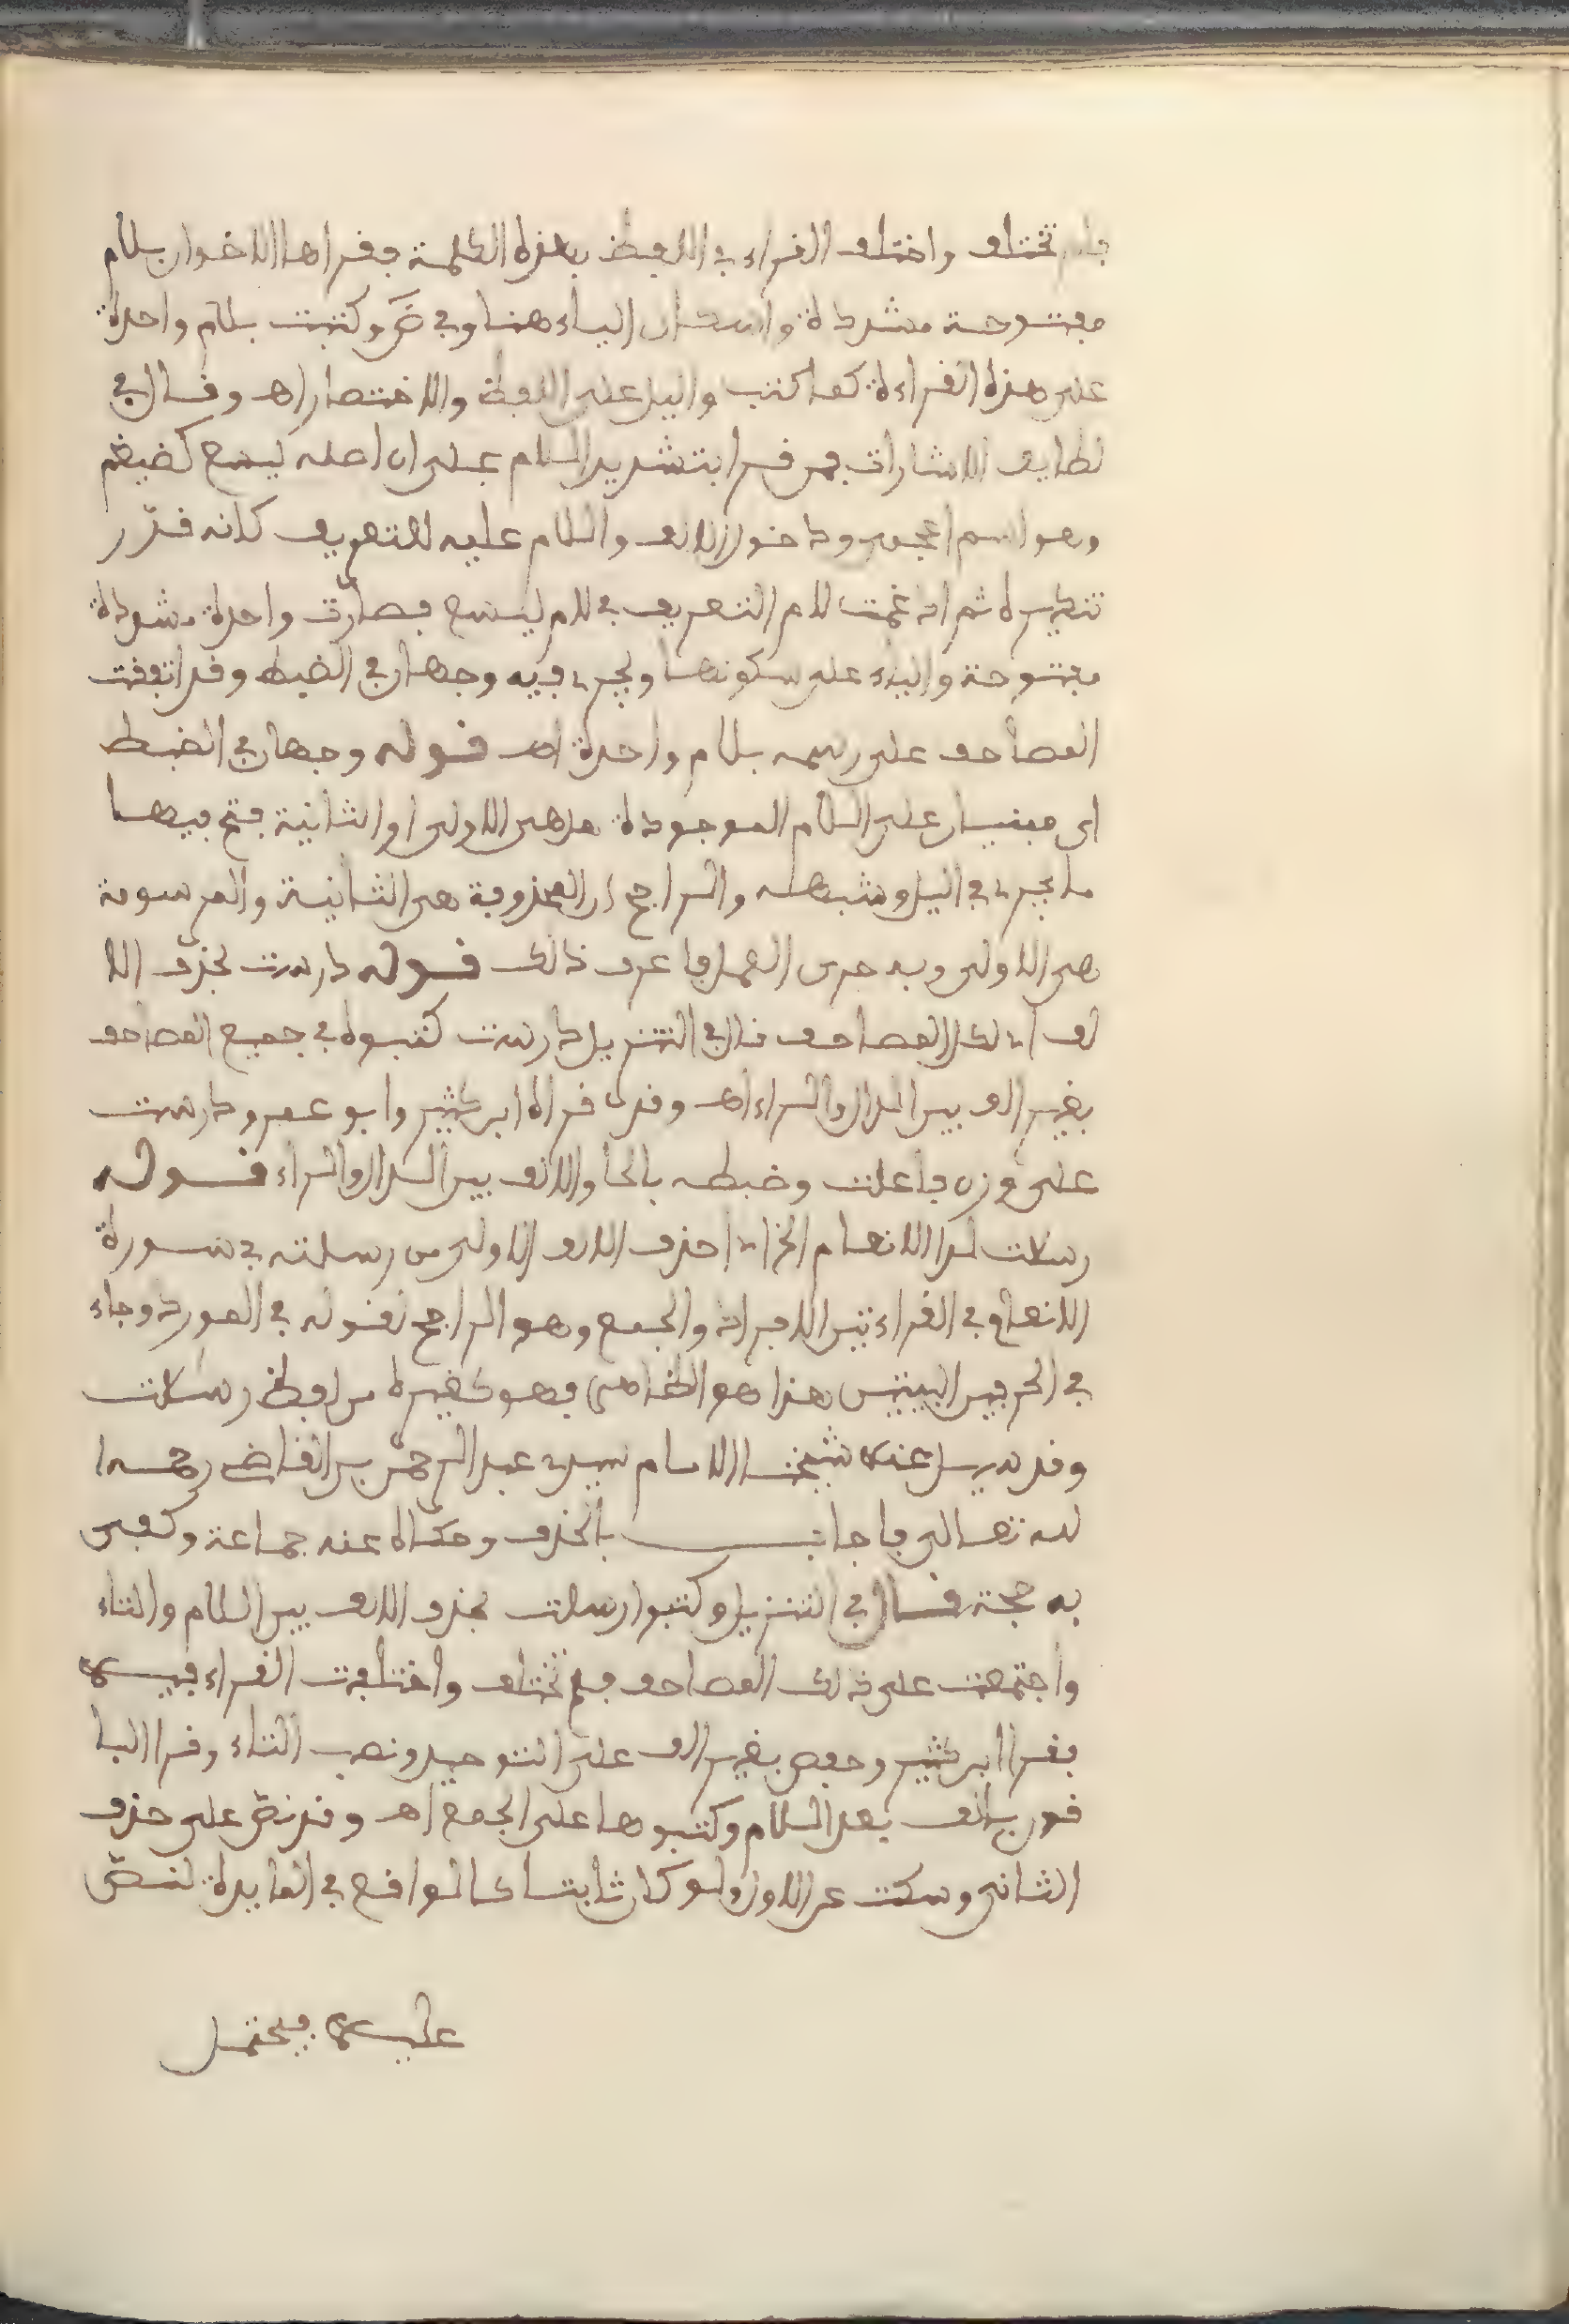 فلم تختلف واختلف القراء في اللفظ بهذه الكلمة فقراها الاخوان بلام
مفتوحة مشددة واسكان الياء هنا وفي ص وكتبت بلام واحدة
على هذه القراءة كما كتب واليل على اللفظ والاختصار اهـ وقال في
لطايف الاشارات فمن قرا بتشديد اللام على ان اصله ليسع كضيغم
وهو اسم اعجمي ودخول الالف واللام عليه للتعريف كانه قدر
تنكيره ثم ادغمت لام التعريف في لام ليسع فصارت واحدة مشددة
مفتوحة والياء على سكونها ويجري فيه وجهان في الضبط وقد اتفقت
المصاحف على رسمه بلام واحدة اهـ قوله وجهان في الضبط
اى مبنيان على اللام الموجودة هل هى الاولى او الثانية فتح فيها
ما يجري في اليل وشبهه والراجح ان المحذوفة هى الثانية والمرسومة
هى الاولى وبه جرى العمل فاعرف ذالك قوله دارست بحذف الا
لف اي لكل المصاحف قال في التنزيل دارست كتبوه في جميع المصاحف
بغير الف بين الدال والراء اهـ وقد قراه ابن كثير وابو عمرو دارست
على وزن فاعلت وضبطه بالحاو الالف بين الدال والراء قوله
رسلات لدا الانعام الخ اي احذف الالف الاولى من رسلته في سورة
الانعام في القراءتين الافراد والجمع وهو الراجح لقوله في المورد وجاء
في الحرفين البيتين هذا هو الظاهر فهو كغيره من لفظ رسلات
وقد سيل عنه شيخنا الامام سيدي عبد الرحمن بن القاضى رحمه ا
لله تعالى فاجاب بالحذف وحكاه عنه جماعة وكفى
به حجة قال في التنزيل وكتبوا رسلت بحذف الالف بين اللام والتاء
واجتمعت على ذلك المصاحف فلم تختلف واختلفت القراء فيه
فقرا ابن كثير وحفص بغير الف على التوحيد ونصب التاء وقرا البا
قون بالف بعد اللام وكتبوها على الجمع اهـ وقد نص على حذف
الثاني وسكت عن الاول ولو كان ثابتا كالواقع في المايدة لنص
عليه فيحتمل